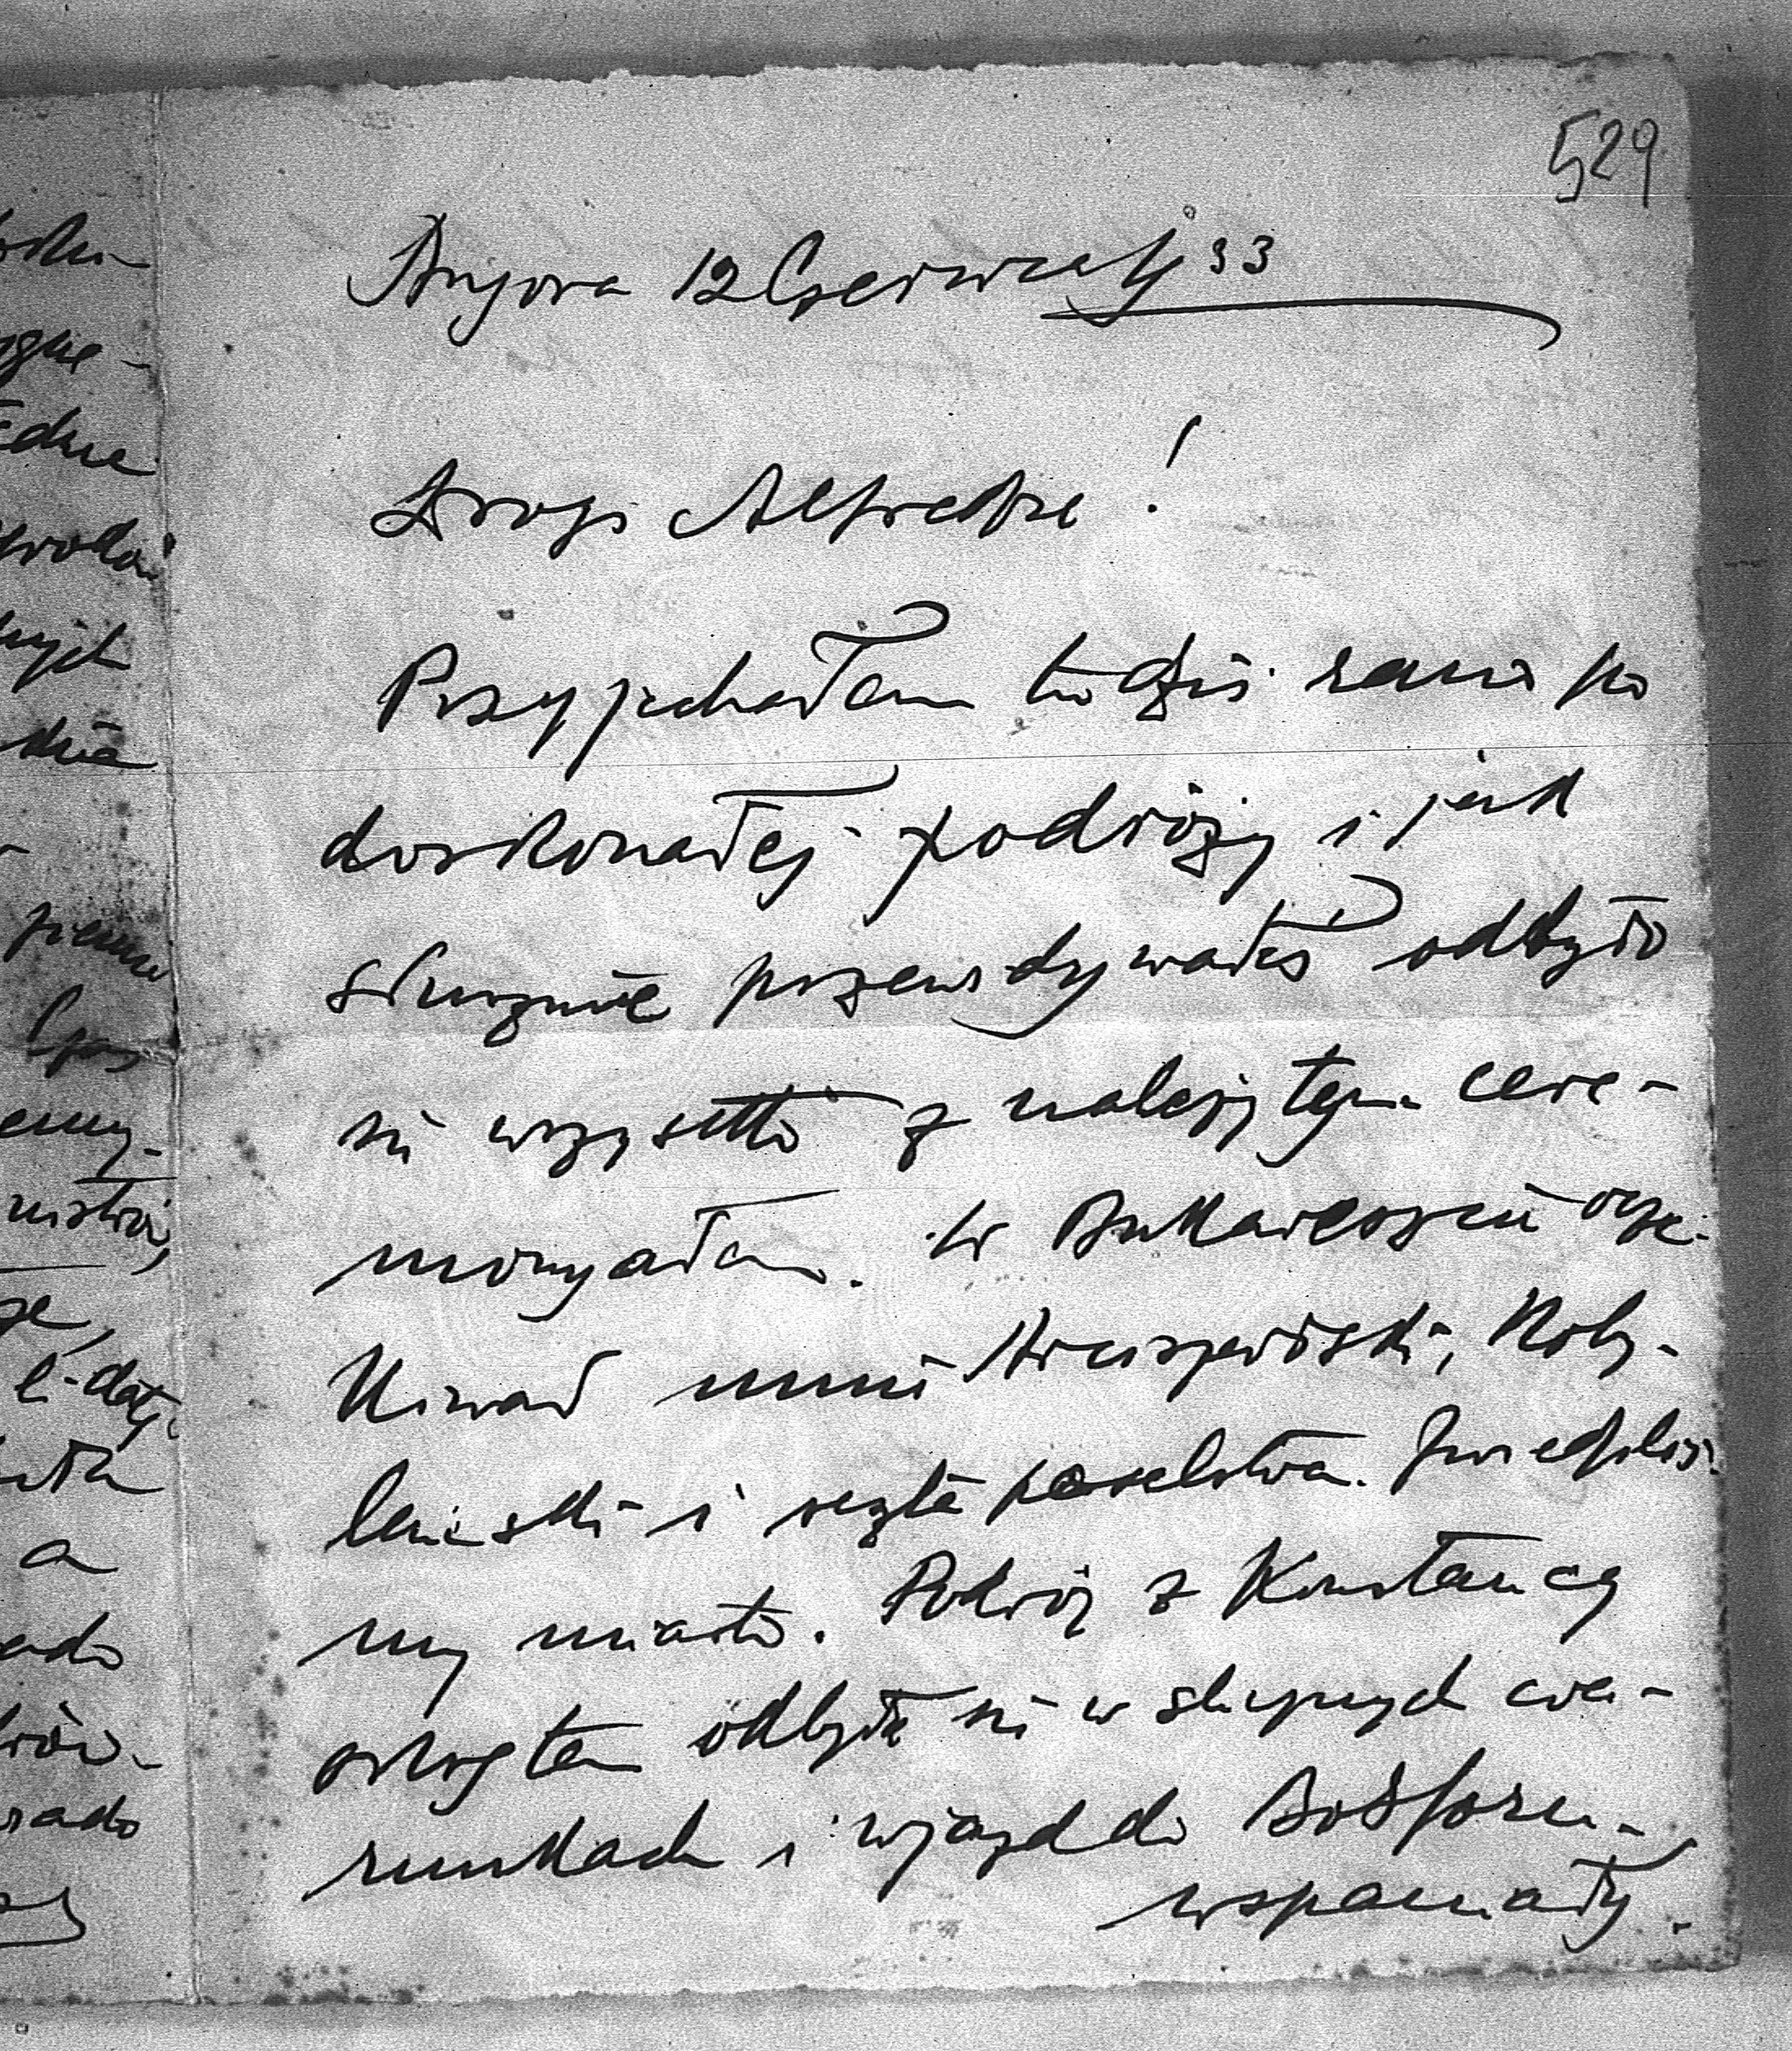 529
Angora 12 Czerwca 33
Drogi Alfredzie!
Przyjechałem tu dziś rano po
doskonałej podróży i jak
słusznie przewidywałeś odbyło
się wszystko z należytym cere-
moniałem. W Bukareszcie ocze-
kiwał mnie Arciszewski, Koby-
lański i reszta poselstwa. Zwiedziliś-
my miasto. Podróż z Konstancy
okrętem odbyła się w ślicznych wa-
runkach i wjazd do Bosforu
wspaniały.